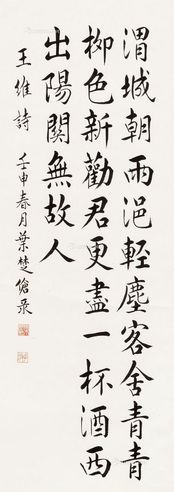 渭城朝雨浥輕塵客舍青青
柳色新勸君更盡一杯酒西
出陽關無故人
王維詩 壬申春月葉楚傖录